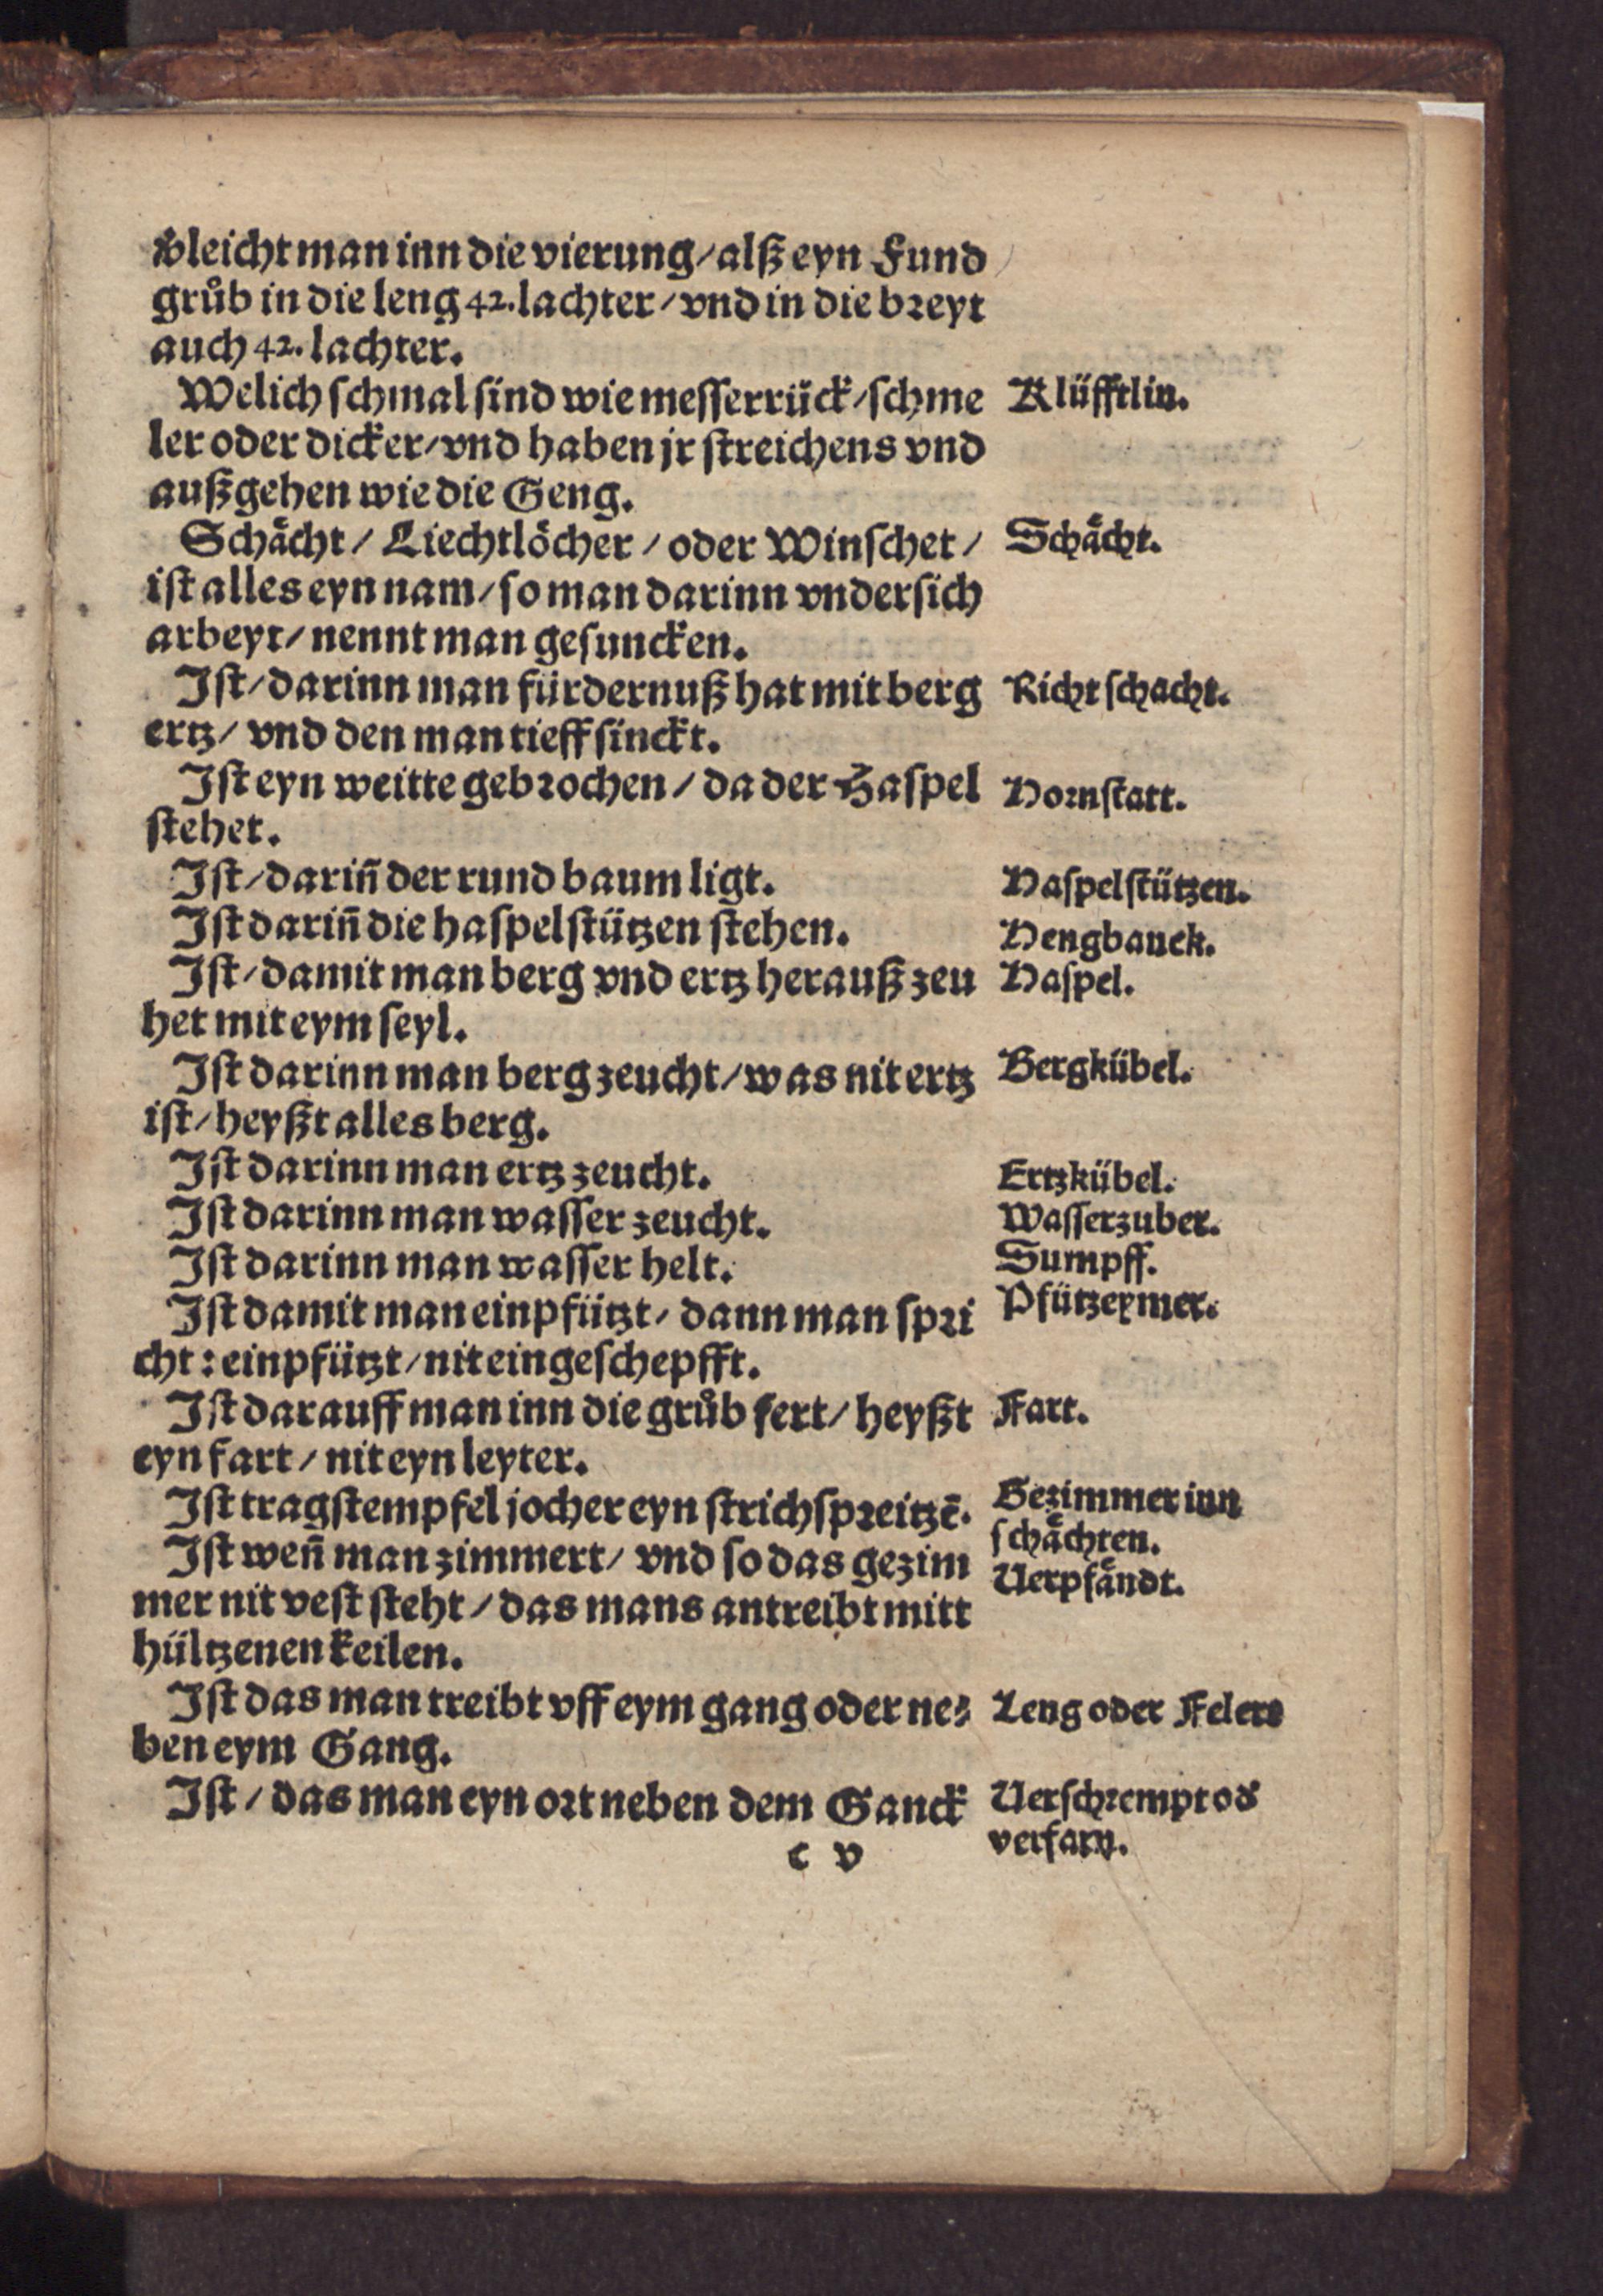 vͤleicht man inn die vierung/ alß eyn Fund
grůb in die leng 42. lachter/ vnd in die breyt
auch 42. lachter.
Welich schmal sind wie messerrück/ schme
Klüfftlin.
ler oder dicker/ vnd haben jr streichens vnd
außgehen wie die Geng.
Schaͤcht/ Liechtloͤcher/ oder Winschet/
Schaͤcht.
ist alles eyn nam/ so man darinn vndersich
arbeyt/ nennt man gesuncken.
Ist/ darinn man fürdernuß hat mit berg
Richtschacht.
ertz/ vnd den man tieff sinckt.
Ist eyn weitte gebrochen/ da der Haspel
Hornstatt.
stehet.
Ist/ dariñ der rund baum ligt.
Haspelstützen.
Ist dariñ die haspelstützen stehen.
Hengbanck.
Ist/ damit man berg vnd ertz herauß zeu
Haspel.
het mit eym seyl.
Ist darinn man berg zeucht/ was nit ertz
Bergkübel.
ist/ heyßt alles berg.
Ist darinn man ertz zeucht.
Ertzkübel.
Ist darinn man wasser zeucht.
Wasserzuber.
Ist darinn man wasser helt.
Sumpff.
Ist damit man einpfützt/ dann man spri
Pfützeymer.
cht: einpfützt/ nit eingeschepfft.
Ist darauff man inn die grůb fert/ heyßt
Fart.
eyn fart/ nit eyn leyter.
Ist tragstempfel jocher eyn strich spreitzē.
Gezimmer inn
schaͤchten.
Ist weñ man zimmert/ vnd so das gezim
Verpfaͤndt.
mer nit vest steht/ das mans antreibt mitt
hültzenen keilen.
Ist das man treibt vff eym gang oder ne⸗
Leng oder Felers
ben eym Gang.
Ist/ das man eyn ort neben dem Ganck
Verschrempt od
verfarn.
c v